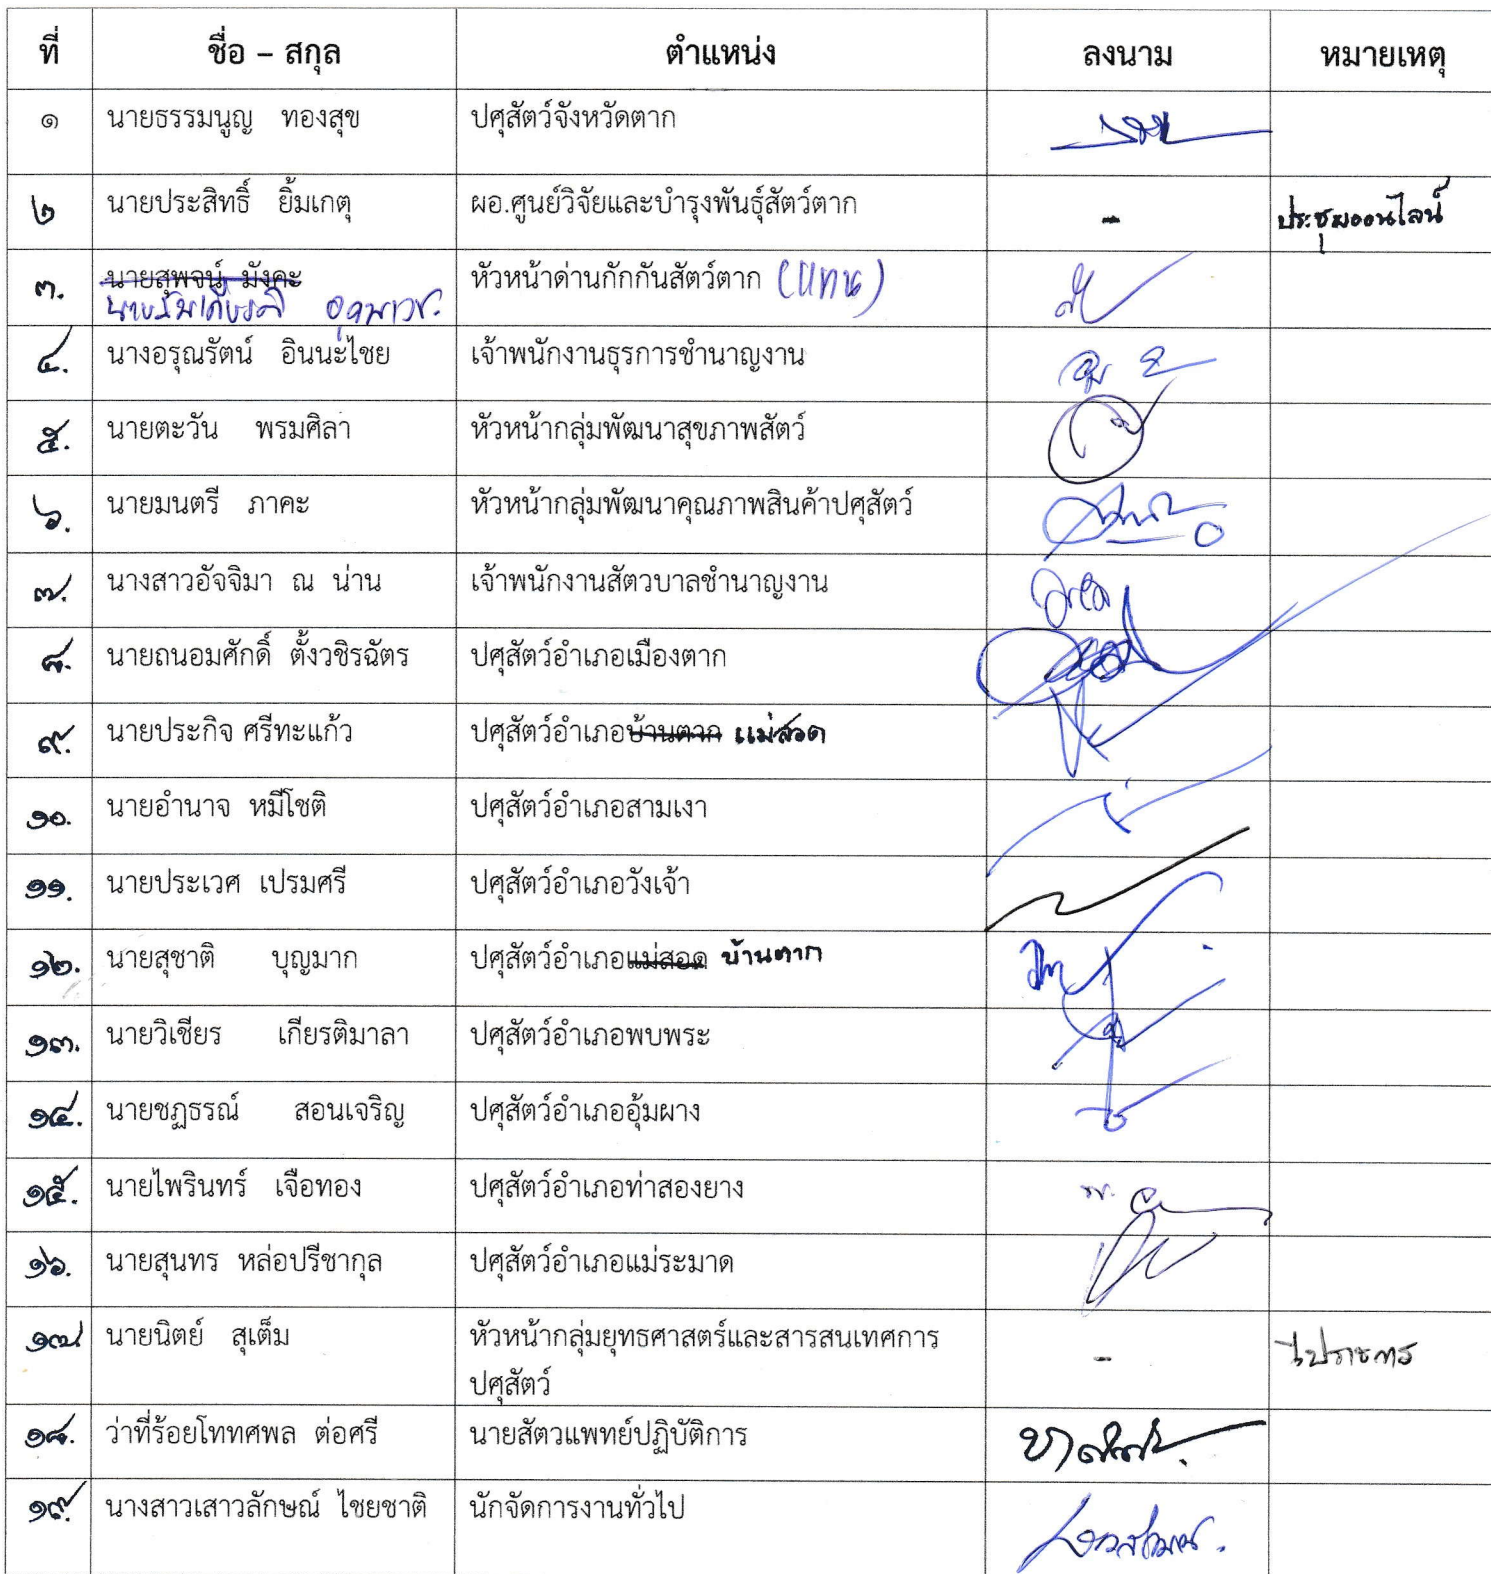 ที่ ชื่อ – สกุล ตำแหน่ง ลงนาม หมายเหตุ
๑ นายธรรมนูญ ทองสุข ปศุสัตว์จังหวัดตาก
๒ นายประสิทธิ์ ยิ้มเกตุ ผอ.ศูนย์วิจัยและบำรุงพันธุ์สัตว์ตาก - ประชุมออนไลน์
๓. นายสุพจน์ มังคะ หัวหน้าด่านกักกันสัตว์ตาก (แทน)
๔. นางอรุณรัตน์ อินนะไชย เจ้าพนักงานธุรการชำนาญงาน
๕. นายตะวัน พรมศิลา หัวหน้ากลุ่มพัฒนาสุขภาพสัตว์
๖. นายมนตรี ภาคะ หัวหน้ากลุ่มพัฒนาคุณภาพสินค้าปศุสัตว์
๗. นางสาวอัจจิมา ณ น่าน เจ้าพนักงานสัตวบาลชำนาญงาน
๘. นายถนอมศักดิ์ ตั้งวชิรฉัตร ปศุสัตว์อำเภอเมืองตาก
๙. นายประกิจ ศรีทะแก้ว ปศุสัตว์อำเภอบ้านตาก แม่สอด
๑๐. นายอำนาจ หมีโชติ ปศุสัตว์อำเภอสามเงา
๑๑. นายประเวศ เปรมศรี ปศุสัตว์อำเภอวังเจ้า
๑๒. นายสุชาติ บุญมาก ปศุสัตว์อำเภอแม่สอด บ้านตาก
๑๓. นายวิเชียร เกียรติมาลา ปศุสัตว์อำเภอพบพระ
๑๔. นายชฎธรณ์ สอนเจริญ ปศุสัตว์อำเภออุ้มผาง
๑๕. นายไพรินทร์ เจือทอง ปศุสัตว์อำเภอท่าสองยาง
๑๖. นายสุนทร หล่อปรีชากุล ปศุสัตว์อำเภอแม่ระมาด
๑๗ นายนิตย์ สุเต็ม หัวหน้ากลุ่มยุทธศาสตร์และสารสนเทศการ - ไปราชการ
ปศุสัตว์
๑๘. ว่าที่ร้อยโททศพล ต่อศรี นายสัตวแพทย์ปฏิบัติการ
๑๙. นางสาวเสาวลักษณ์ ไชยชาติ นักจัดการงานทั่วไป